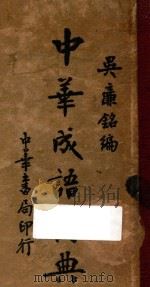 吳廉銘編
中華成語典
中華書局印行